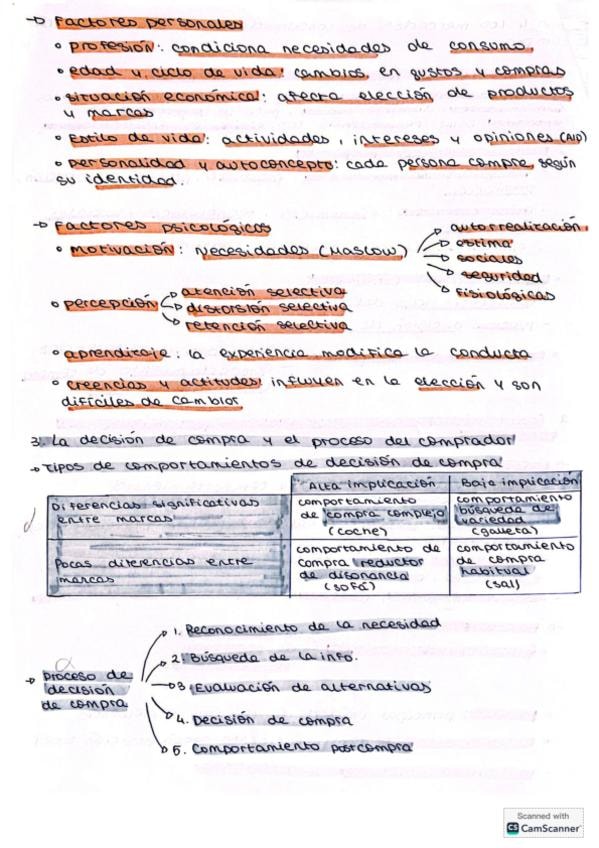 → Factores personales
• profesión: condiciona necesidades de consumo
• edad y ciclo de vida: cambios en gustos y compras
• situación económica: afecta elección de productos
y marcas
• Estilo de vida: actividades, intereses y opiniones (AIO)
• personalidad y autoconcepto: cada persona compre según
su identidad.
→ Factores psicológicos
• motivación: necesidades (Maslow)
autorrealización
estima
sociales
seguridad
fisiológicas
• percepción
atención selectiva
distorsión selectiva
retención selectiva
• aprendizaje: la experiencia modifica la conducta
• creencias y actitudes: influyen en la elección y son
difíciles de cambios
3. La decisión de compra y el proceso del comprador
→ Tipos de comportamientos de decisión de compra
Alta implicación
Baja implicación
Diferencias significativas
entre marcas
comportamiento
de compra complejo
(coche)
comportamiento
búsqueda de
variedad
(galleta)
Pocas diferencias entre
marcas
comportamiento de
compra reductor
de disonancia
(sofá)
comportamiento
de compra
habitual
(sal)
→ proceso de
decisión
de compra
1. Reconocimiento de la necesidad
2. Búsqueda de la info.
3. Evaluación de alternativas
4. Decisión de compra
5. Comportamiento postcompra
Scanned with
CS CamScanner